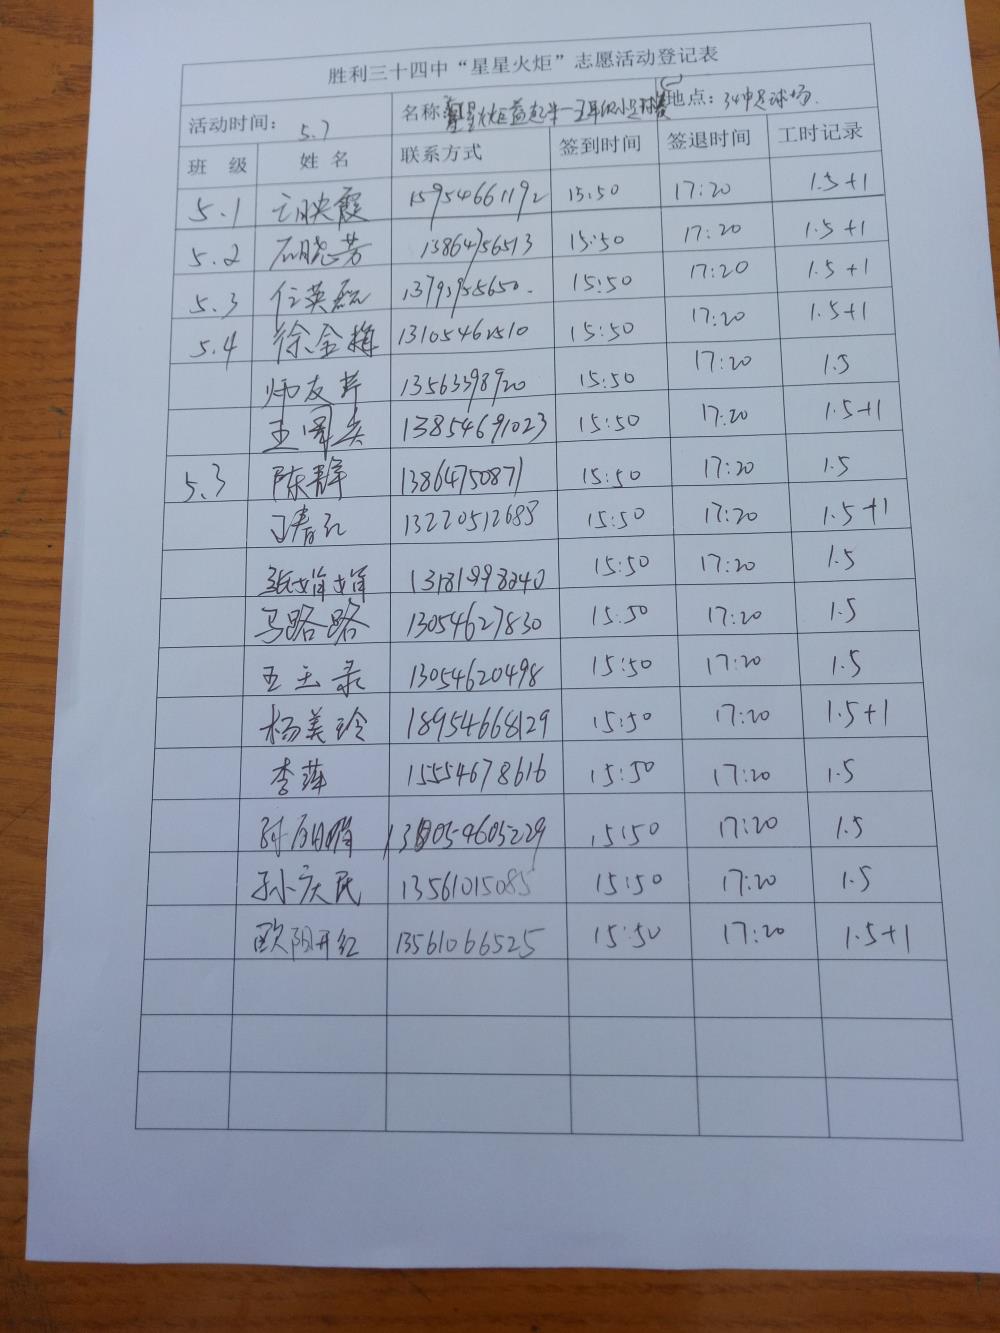 胜利三十四中“星星火炬”志愿活动登记表
活动时间： 5.7 名称： 地点：34中足球场.
班 级 姓 名 联系方式 签到时间 签退时间 工时记录
5.1 映霞 15954661192 15:50 17:20 1.5+1
5.2 石晓芳 13864756513 15:50 17:20 1.5+1
5.3 任英磊 13793955650. 15:50 17:20 1.5+1
5.4 徐金梅 13105462510 15:50 17:20 1.5+1
师友芹 13563398920 15:50 17:20 1.5
王 13854691023 15:50 17:20 1.5+1
5.3 陈静 13864750871 15:50 17:20 1.5
丁春红 13220512685 15:50 17:20 1.5+1
张娟娟 13181998240 15:50 17:20 1.5
马路路 13054627830 15:50 17:20 1.5
王玉录 13054620498 15:50 17:20 1.5
杨美玲 18954668129 15:50 17:20 1.5+1
李萍 15554678616 15:50 17:20 1.5
054605229 15:50 17:20 1.5
孙庆民 13561015085 15:50 17:20 1.5
欧阳开红 13561066525 15:50 17:20 1.5+1